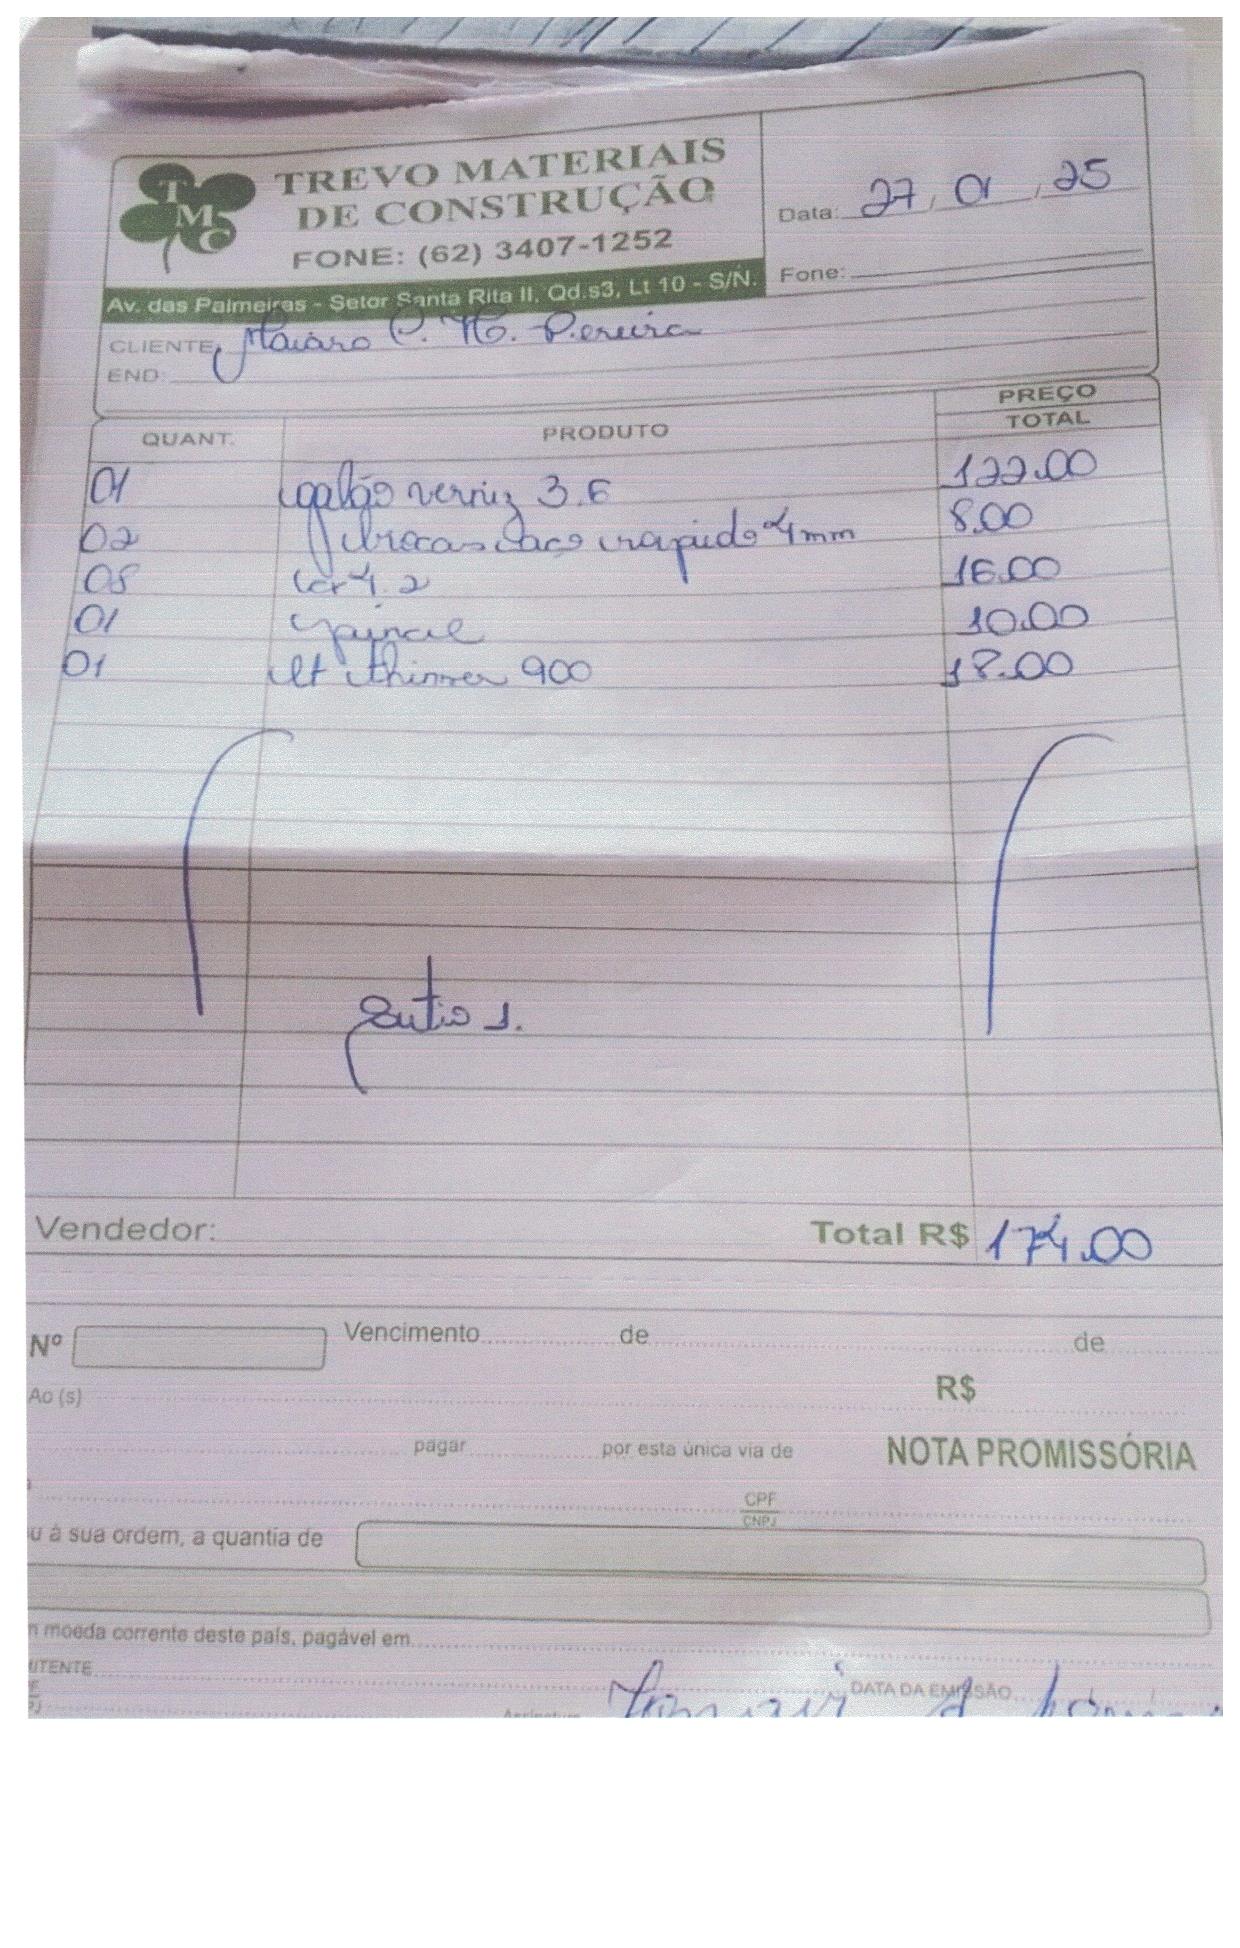 TMC
TREVO MATERIAIS
DE CONSTRUÇÃO
FONE: (62) 3407-1252
Data: 27, 01, 25
Av. das Palmeiras - Setor Santa Rita II, Qd.s3, Lt 10 - S/N.
Fone:
CLIENTE Pereira
END:
QUANT. PRODUTO PREÇO TOTAL
01 galão verniz 3.6 122.00
02 brocas aço rapido 4mm 8.00
08 4.2 16.00
01 pincel 10.00
01 lt thinner 900 18.00
1.
Vendedor: Total R$ 174.00
Nº Vencimento de de
Ao (s) R$
pagar por esta única via de NOTA PROMISSÓRIA
CPF
CNPJ
u à sua ordem, a quantia de
m moeda corrente deste país, pagável em
ITENTE
DATA DA EMISSÃO